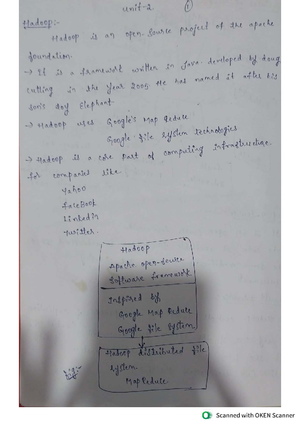 Unit-2
1
Hadoop:-
Hadoop is an open-source project of the apache
foundation.
→ It is a framework written in java developed by doug
cutting in the year 2005 He has named it after his
son's toy Elephant
→ Hadoop uses Google's Map Reduce
Google file System technologies
→ Hadoop is a core part of computing infrastructure
for companies like
Yahoo
FaceBook
LinkedIn
Twitter
Hadoop
Apache open-source
Software framework
Inspired by
Google Map Reduce
Google file System
Hadoop distributed file
System
MapReduce
Scanned with OKEN Scanner